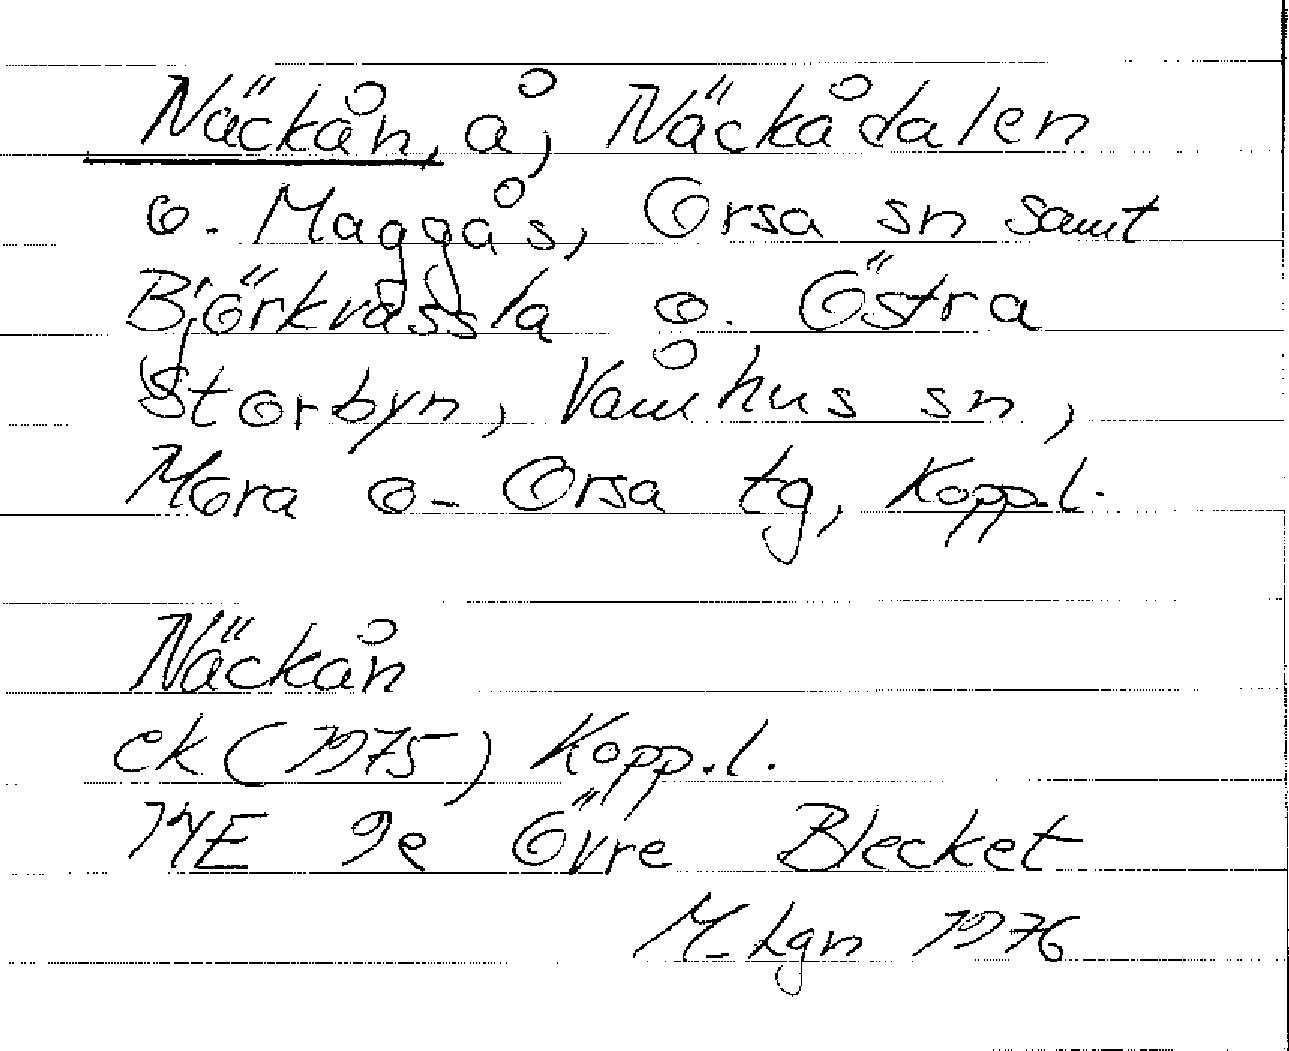 Näckån, å, Näckådalen
o. Maggås, Orsa sn samt
Björkvassla o. Östra
Storbyn, Våmhus sn,
Mora o. Orsa tg, Kopp.l.
Näckån
ek (1975) Kopp.l.
14E 9e Övre Blecket
M. Lgn 1976